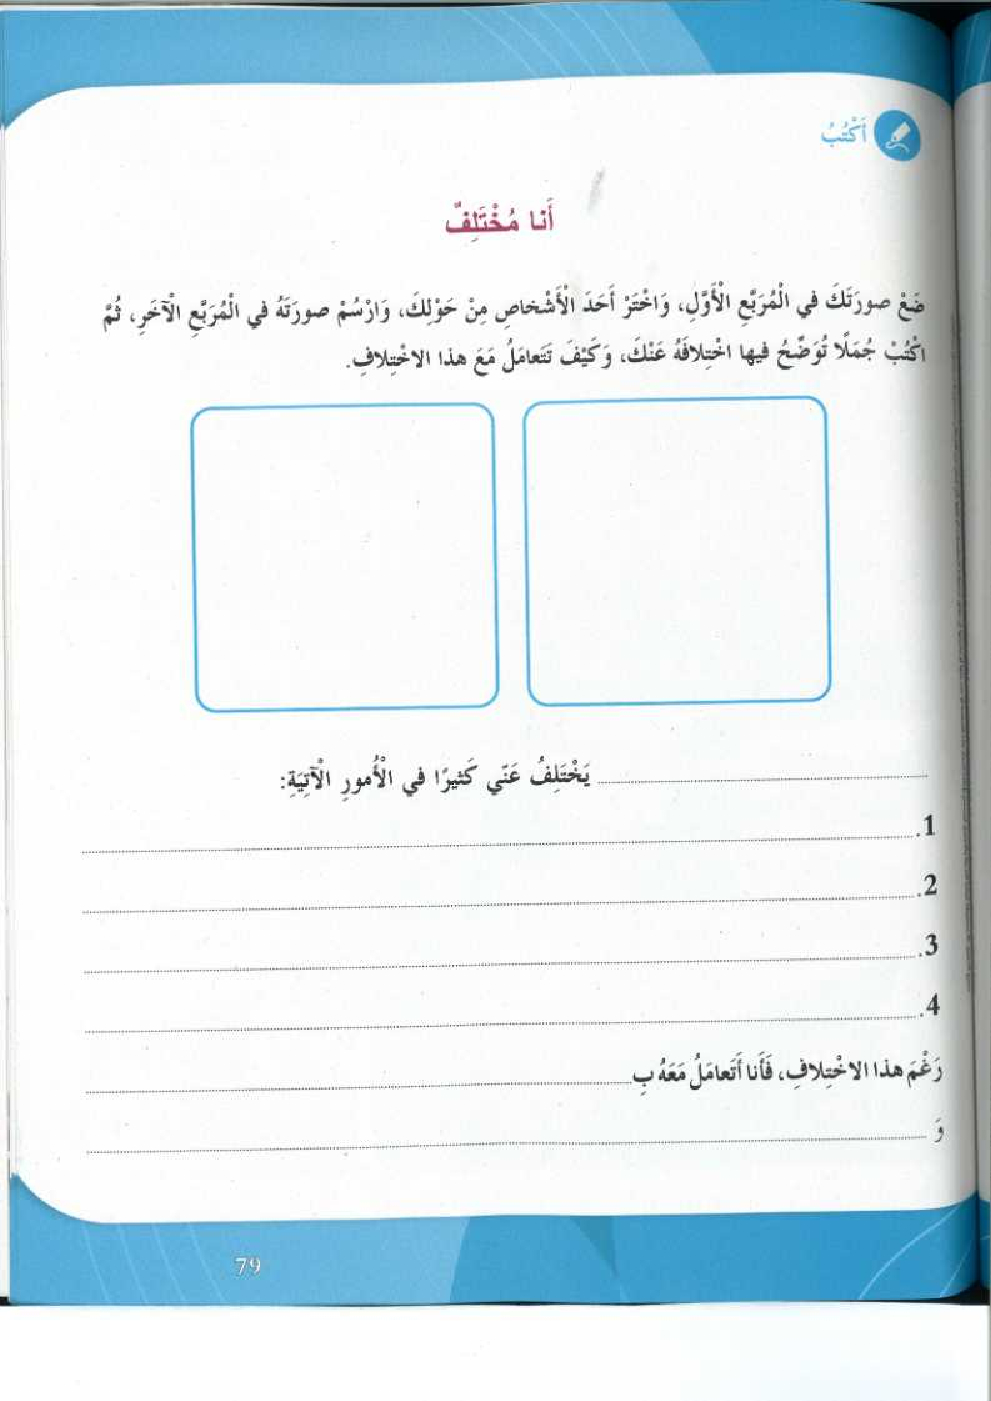 أَكْتُبُ
أَنا مُخْتَلِفٌ
ضَعْ صورَتَكَ في الْمُرَبَّعِ الْأَوَّلِ، وَاخْتَرْ أَحَدَ الْأَشْخاصِ مِنْ حَوْلِكَ، وَارْسُمْ صورَتَهُ في الْمُرَبَّعِ الْآخَرِ، ثُمَّ
اكْتُبْ جُمَلًا تُوَضِّحُ فيها اخْتِلافَهُ عَنْكَ، وَكَيْفَ تَتَعامَلُ مَعَ هذا الاخْتِلافِ.
يَخْتَلِفُ عَنّي كَثيرًا في الْأُمورِ الْآتِيَةِ:
1.
2.
3.
4.
رَغْمَ هذا الاخْتِلافِ، فَأَنا أَتَعامَلُ مَعَهُ بِ
وَ
79